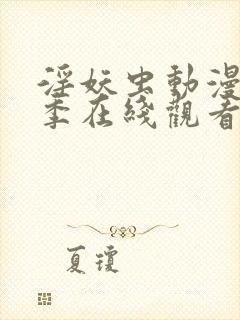 淫妖虫動漫
季在綫觀看
夏瓊